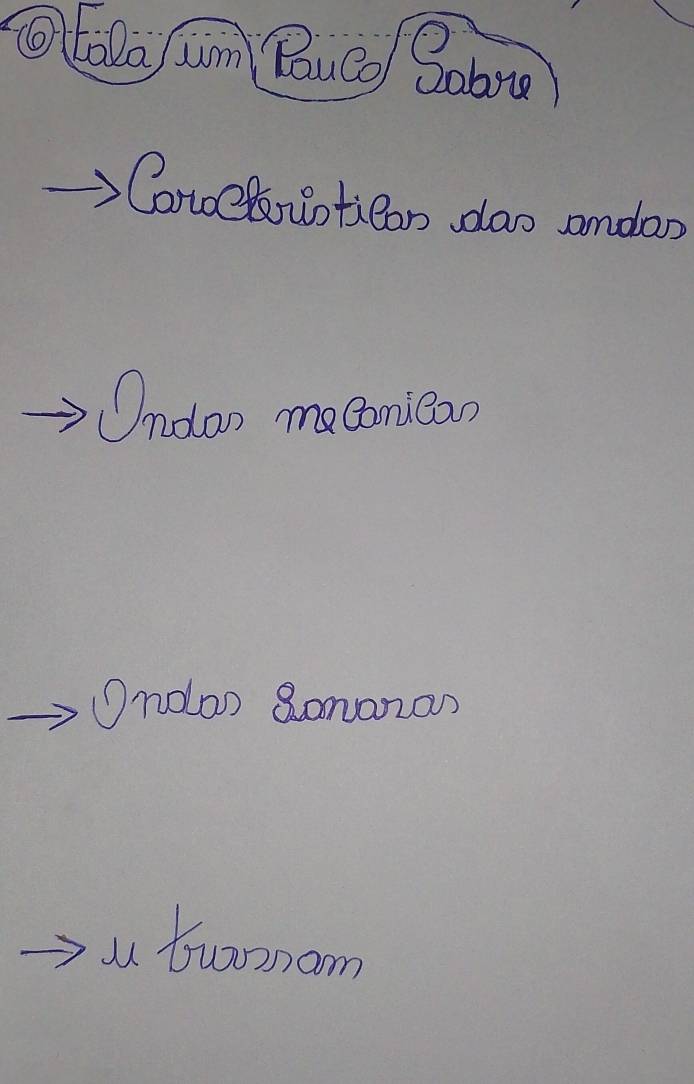 ⑥ Fala um Pouco Sobre
→ Caracteristicas das ondas
→ Ondas mecanicas
→ Ondas Sonoras
→ u